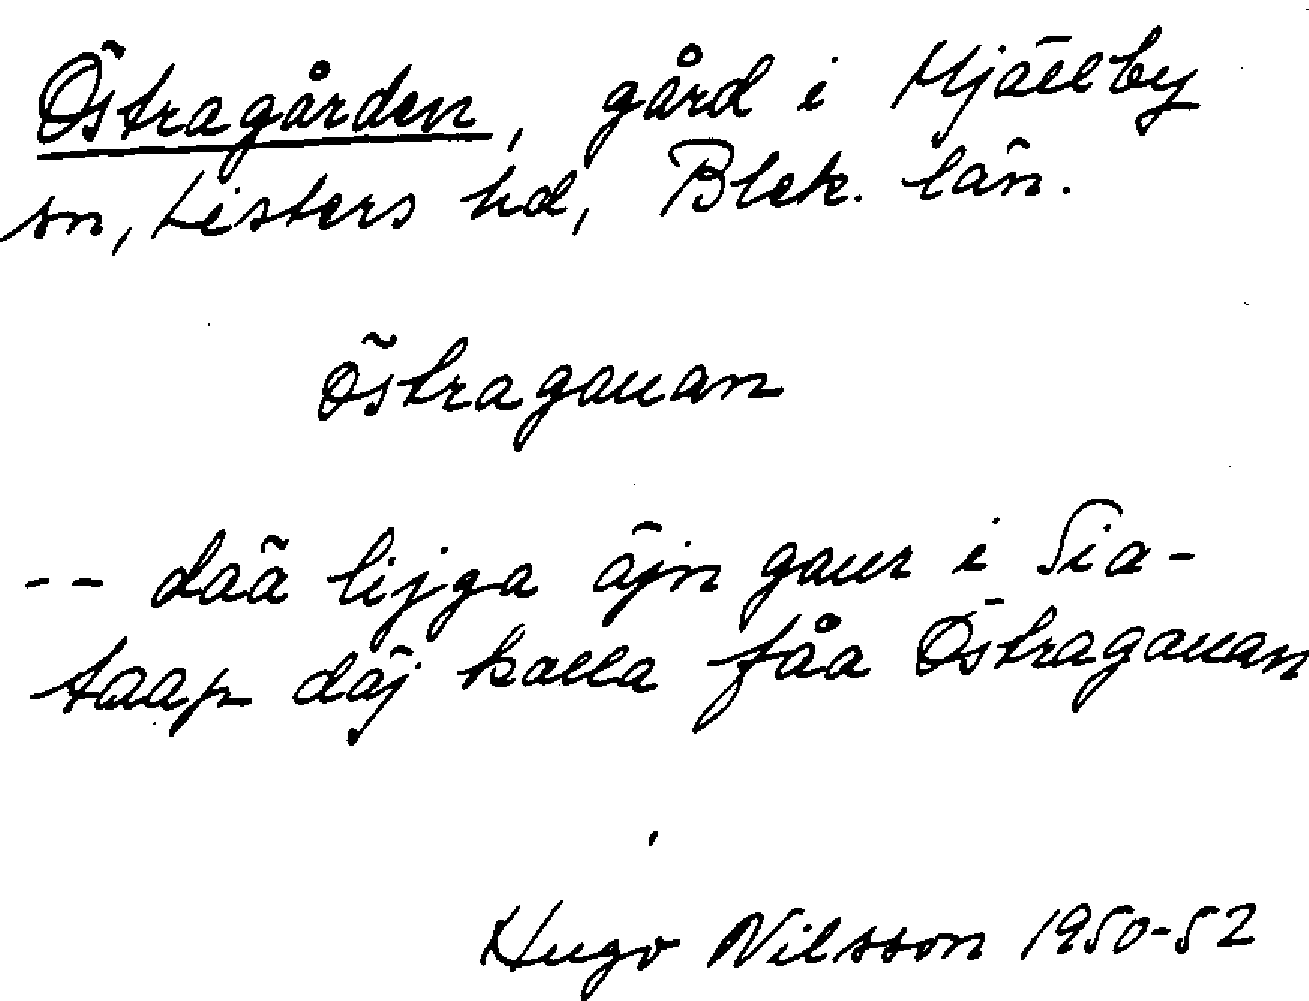 Östragården, gård i Mjällby
sn, Listers hd, Blek. län.
Östragauan
-- daä lijga äjn gaur i Sia-
taap däj kalla fåa Östragauan
Hugo Nilsson 1950-52